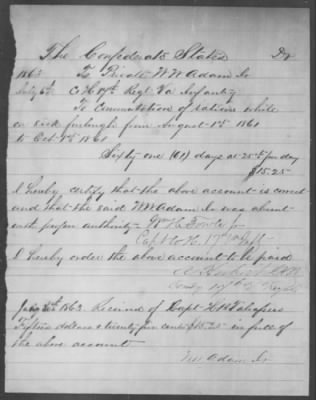 The Confederate States Dr
1863 To Private W W Adam Jr
July 6th Co H 17th Regt Va Infantry
To Commutation of rations while
on sick furlough from August 1st 1861
to Oct 1st 1861
Sixty one (61) days at 25cts per day
$15.25
I hereby certify that the above account is correct
and that the said WW Adam Jr was absent
with proper authority - Wm H Fowle Jr
Capt Co H 17th
I hereby order the above account to be paid
Comdg 17th Va Regt
July 1863 Received of Capt
Fifteen dollars & twenty five cents $15.25 in full of
the above account
Adam Jr